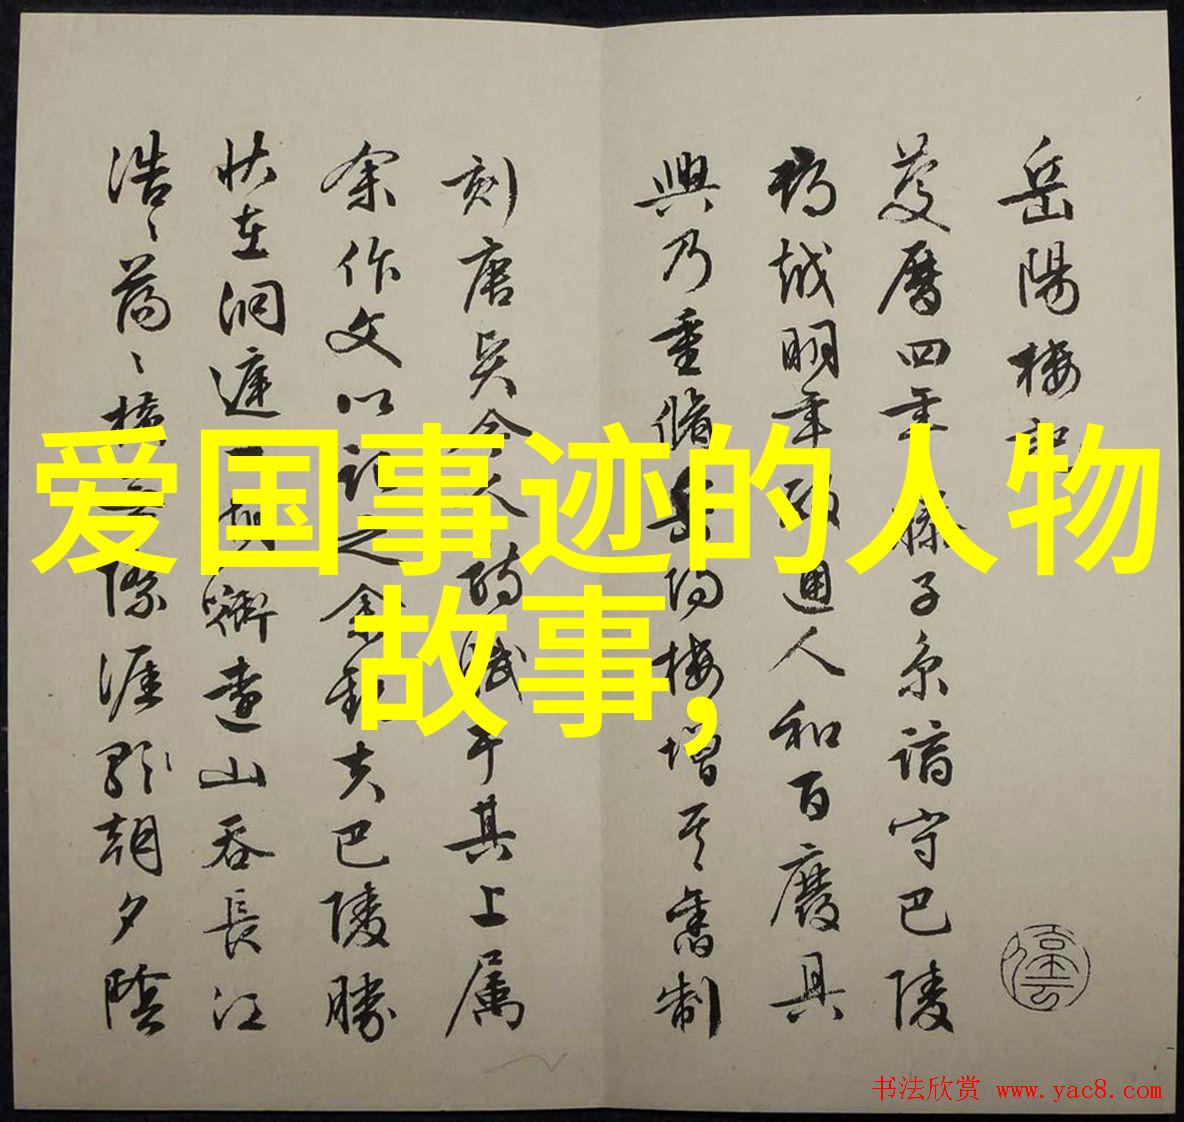 岳陽樓記
慶曆四年 滕子京謫守巴陵
郡越明年政通人和百廢具
興乃重脩岳陽樓增其舊制
刻唐賢今人詩賦于其上属
余作文以記之余觀夫巴陵勝
状在洞庭一湖銜遠山吞長江
浩々蕩々橫無際涯朝夕陰
爱国事迹的人物
故事,
书法欣赏 www.yac8.com